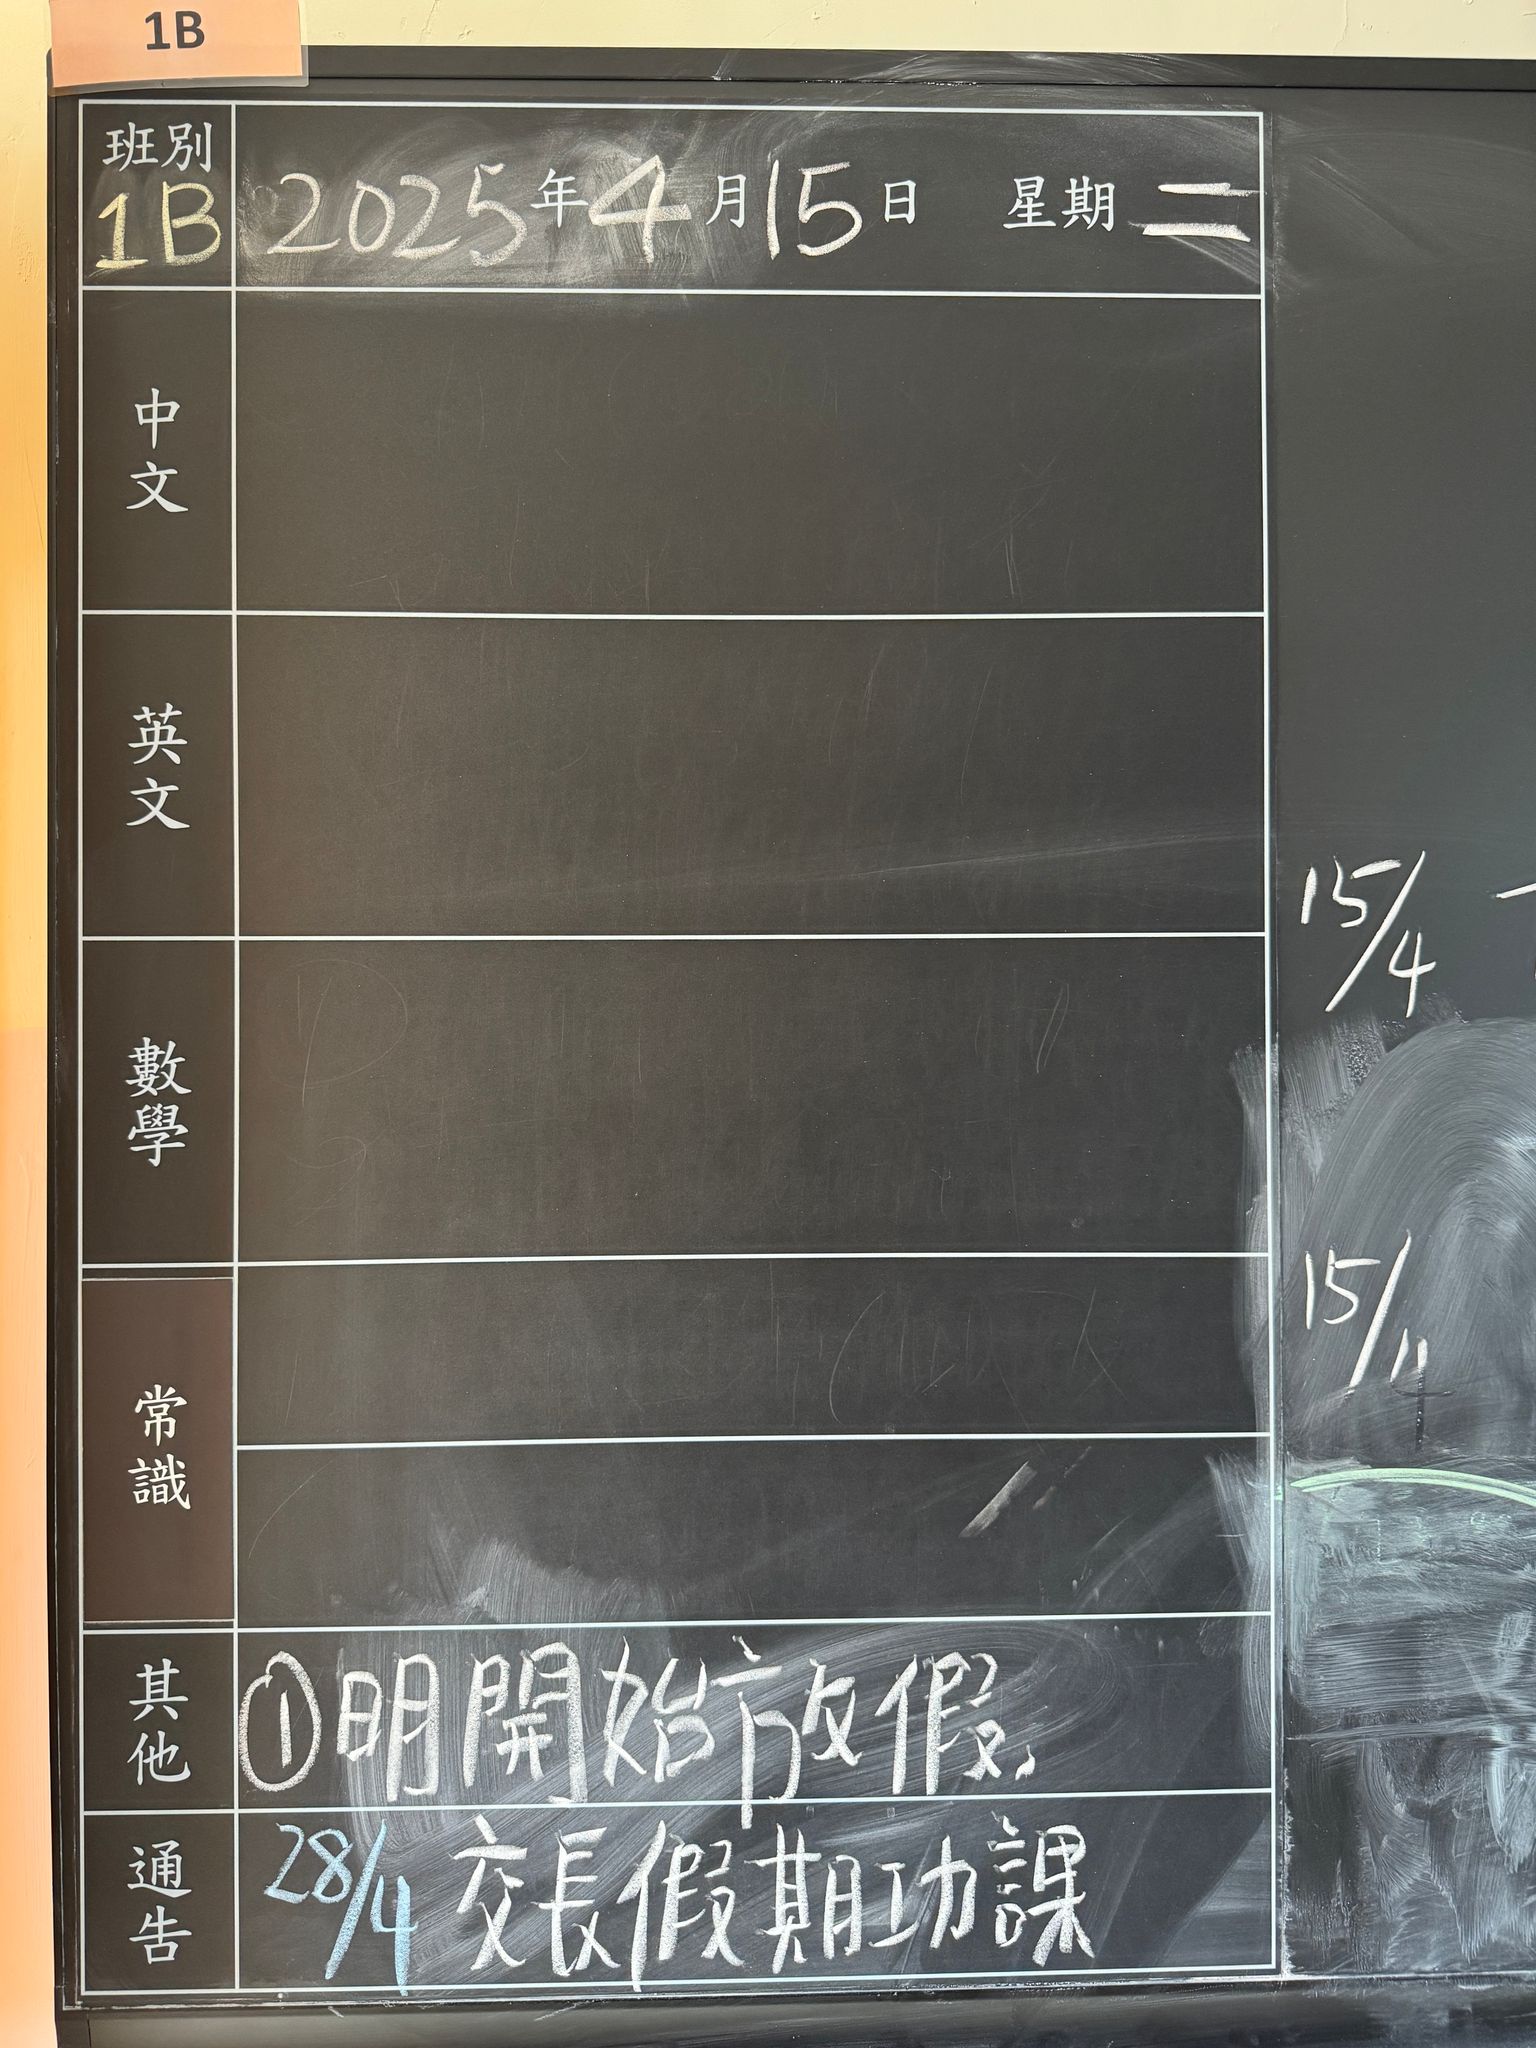 1B
班別
1B
2025年4月15日 星期二
中文
英文
數學
常識
其他
①明開始放假。
通告
28/4 交長假期功課
15/4
15/4